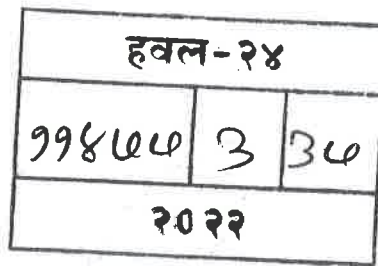 हवल-२४
११४७७ ३ ३७
२०२२